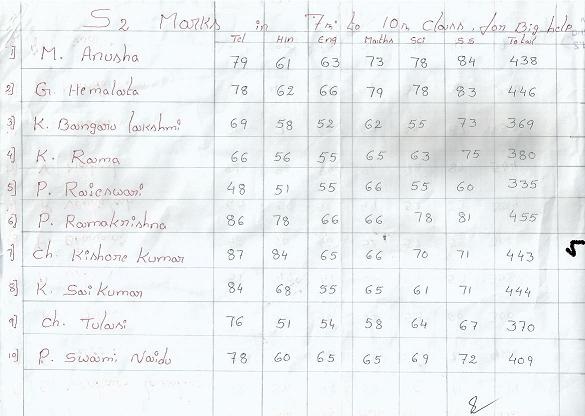 S2 Marks in 7th to 10th Class. for Big help
Tel Hin Eng Maths Sci S S Total
1] M. Anusha 79 61 63 73 78 84 438
2] G. Hemalata 78 62 66 79 78 83 446
3] K. Bangaru lakshmi 69 58 52 62 55 73 369
4] K. Rama 66 56 55 65 63 75 380
5] P. Rajeswari 48 51 55 66 55 60 335
6] P. Ramakrishna 86 78 66 66 78 81 455
7] Ch. Kishore Kumar 87 84 65 66 70 71 443
8] K. Sai Kumar 84 68 55 65 61 71 444
9] Ch. Tulasi 76 51 54 58 64 67 370
10] P. Swami Naidu 78 60 65 65 69 72 409